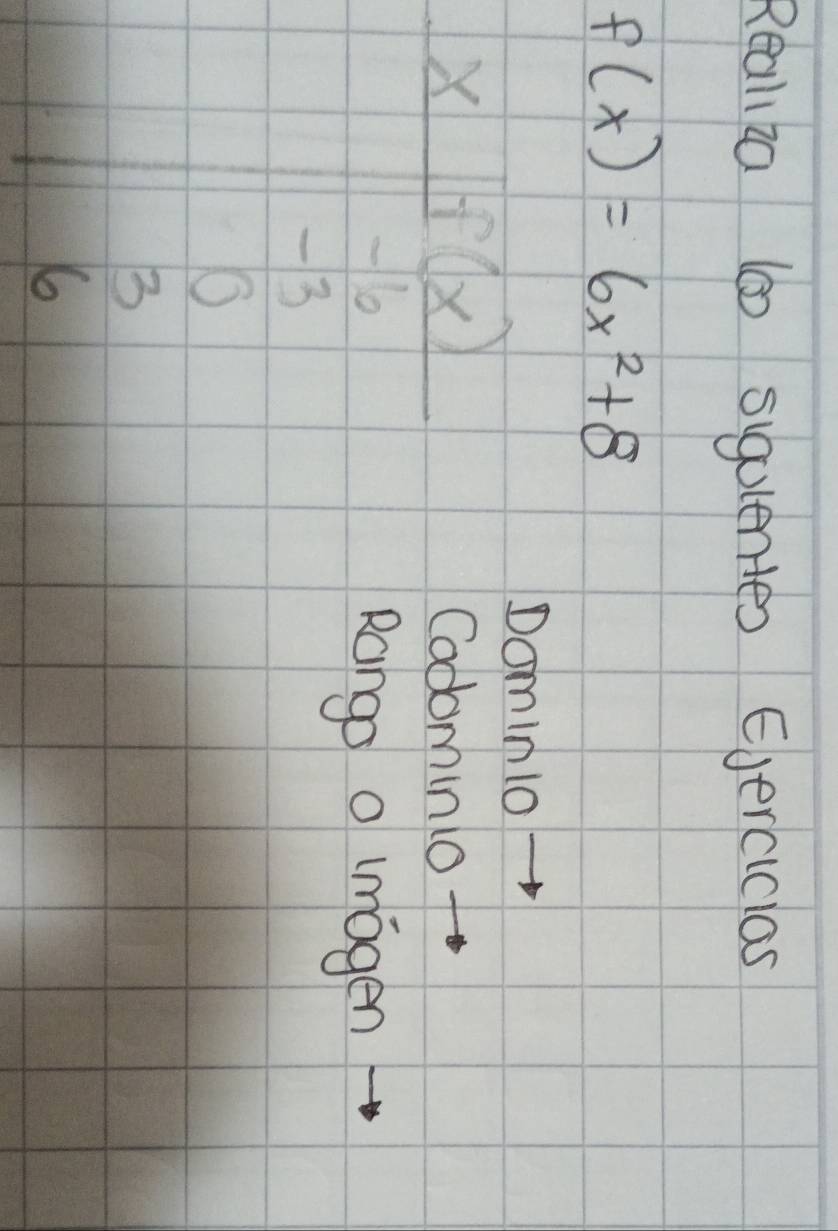 Realiza los siguientes Ejercicios
f(x) = 6x²+8
x f(x)
-6
-3
0
3
6
Dominio →
Codominio →
Rango o imágen →